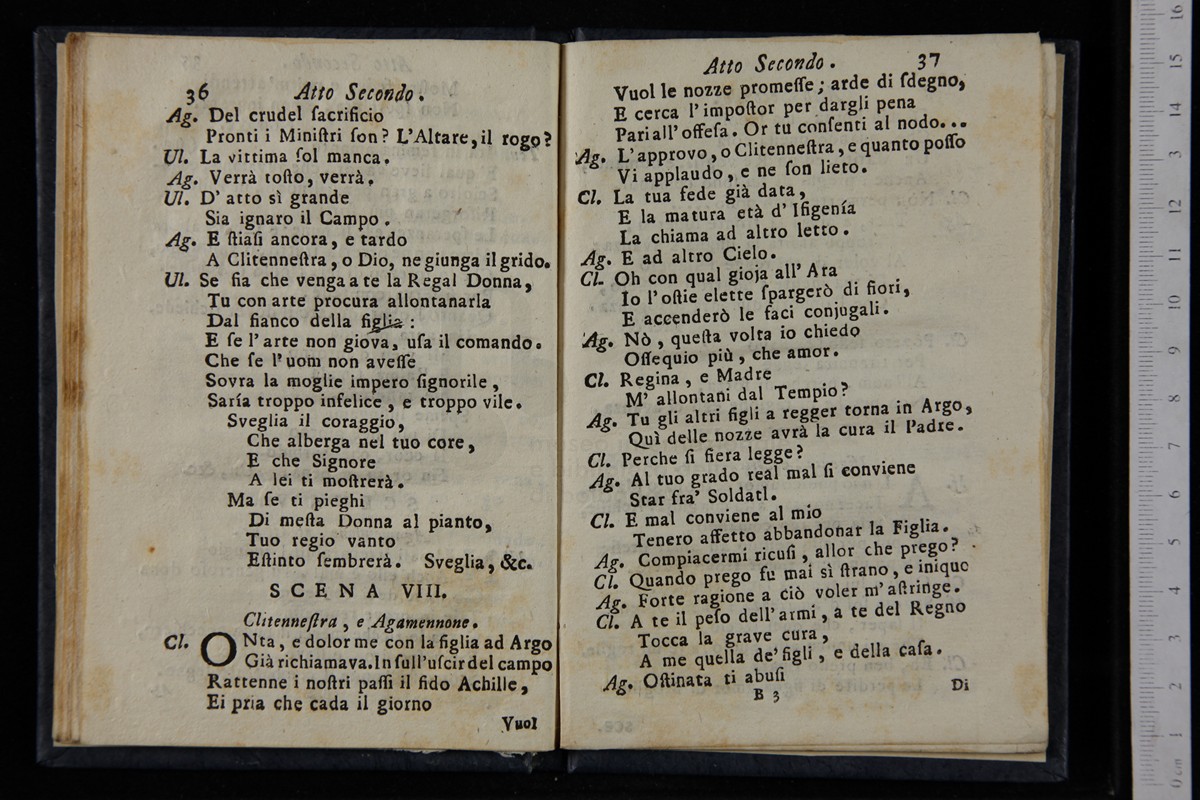 36 Atto Secondo.
Ag. Del crudel ſacrificio
Pronti i Miniſtri ſon? L'Altare, il rogo?
Ul. La vittima ſol manca.
Ag. Verrà toſto, verrà.
Ul. D' atto sì grande
Sia ignaro il Campo.
Ag. E ſtiaſi ancora, e tardo
A Clitenneſtra, o Dio, ne giunga il grido.
Ul. Se fia che venga a te la Regal Donna,
Tu con arte procura allontanarla
Dal fianco della figlia:
E ſe l'arte non giova, uſa il comando.
Che ſe l'uom non aveſſe
Sovra la moglie impero ſignorile,
Saría troppo infelice, e troppo vile.
Sveglia il coraggio,
Che alberga nel tuo core,
E che Signore
A lei ti moſtrerà.
Ma ſe ti pieghi
Di meſta Donna al pianto,
Tuo regio vanto
Eſtinto ſembrerà. Sveglia, &c.
SCENA VIII.
Clitenneſtra, e Agamennone.
Cl. ONta, e dolor me con la figlia ad Argo
Già richiamava. In ſull'uſcir del campo
Rattenne i noſtri paſſi il fido Achille,
Ei pria che cada il giorno
Vuol
Atto Secondo. 37
Vuol le nozze promeſſe; arde di ſdegno,
E cerca l'impoſtor per dargli pena
Pari all' offeſa. Or tu conſenti al nodo...
Ag. L'approvo, o Clitenneſtra, e quanto poſſo
Vi applaudo, e ne ſon lieto.
Cl. La tua fede già data,
E la matura età d' Ifigenía
La chiama ad altro letto.
Ag. E ad altro Cielo.
Cl. Oh con qual gioja all' Ara
Io l'oſtie elette ſpargerò di fiori,
E accenderò le faci conjugali.
Ag. Nò, queſta volta io chiedo
Oſſequio più, che amor.
Cl. Regina, e Madre
M' allontani dal Tempio?
Ag. Tu gli altri figli a regger torna in Argo,
Quì delle nozze avrà la cura il Padre.
Cl. Perche ſi fiera legge?
Ag. Al tuo grado real mal ſi conviene
Star fra' Soldati.
Cl. E mal conviene al mio
Tenero affetto abbandonar la Figlia.
Ag. Compiacermi ricuſi, allor che prego?
Cl. Quando prego fu mai sì ſtrano, e inique
Ag. Forte ragione a ciò voler m'aſtringe.
Cl. A te il peſo dell'armi, a te del Regno
Tocca la grave cura,
A me quella de' figli, e della caſa.
Ag. Oſtinata ti abuſi
B 3 Di
16
15
14
13
12
11
10
9
8
7
6
5
4
3
2
1
0 cm